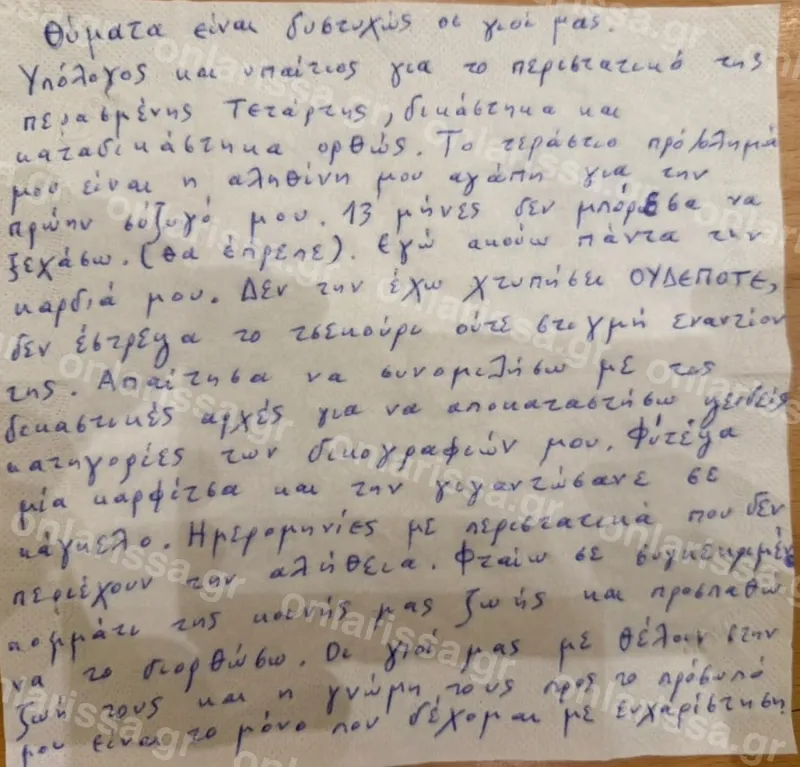 Θύματα είναι δυστυχώς οι γιοί μας.
Υπόλογος και υπαίτιος για το περιστατικό της
περασμένης Τετάρτης, δικάστηκα και
καταδικάστηκα ορθώς. Το τεράστιο πρόβλημά
μου είναι η αληθινή μου αγάπη για την
πρώην σύζυγό μου. 13 μήνες δεν μπόρεσα να
ξεχάσω. (θα έπρεπε). Εγώ ακούω πάντα την
καρδιά μου. Δεν την έχω χτυπήσει ΟΥΔΕΠΟΤΕ,
δεν έστρεψα το τσεκούρι ούτε στιγμή εναντίον
της. Απαίτησα να συνομιλήσω με τις
δικαστικές αρχές για να αποκαταστήσω ψευδείς
κατηγορίες των δικογραφιών μου. Φύτεψα
μία καρφίτσα και την γιγαντώσανε σε
κάγκελο. Ημερομηνίες με περιστατικά που δεν
περιέχουν την αλήθεια. Φταίω σε συγκεκριμένο
κομμάτι της κοινής μας ζωής και προσπαθώ
να το διορθώσω. Οι γιοί μας με θέλουν στην
ζωή τους και η γνώμη τους προς το πρόσωπό
μου είναι το μόνο που δέχομαι με ευχαρίστηση.
onlarissa.gr